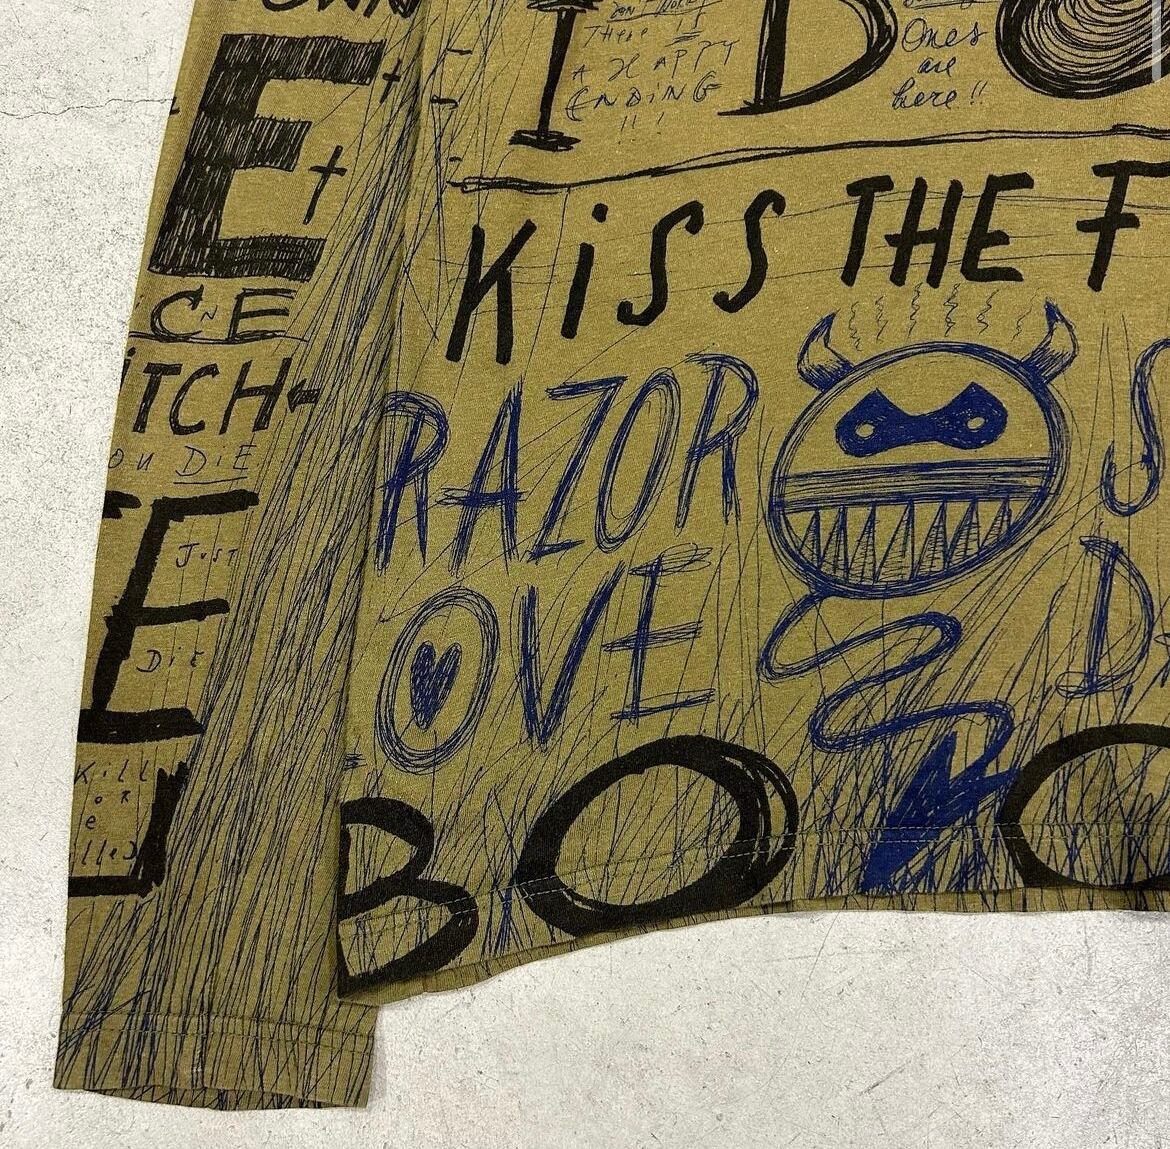 E
CE
ITCH
OU DIE
E
JUST
DIE
Kill
OR
e
lled
There is
A HAPPY
ENDING
!!!
Ones
are
here!!
KiSS THE F
RAZOR
OVE
S
D
BO